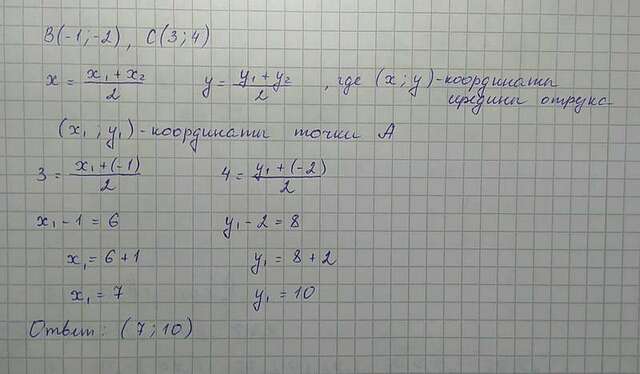 B(-1;-2), C(3;4)
x = (x₁ + x₂)/2 y = (y₁ + y₂)/2 , где (x; y) - координаты
средины отрезка
(x₁; y₁) - координаты точки A
3 = (x₁ + (-1))/2 4 = (y₁ + (-2))/2
x₁ - 1 = 6 y₁ - 2 = 8
x₁ = 6 + 1 y₁ = 8 + 2
x₁ = 7 y₁ = 10
Ответ: (7; 10)